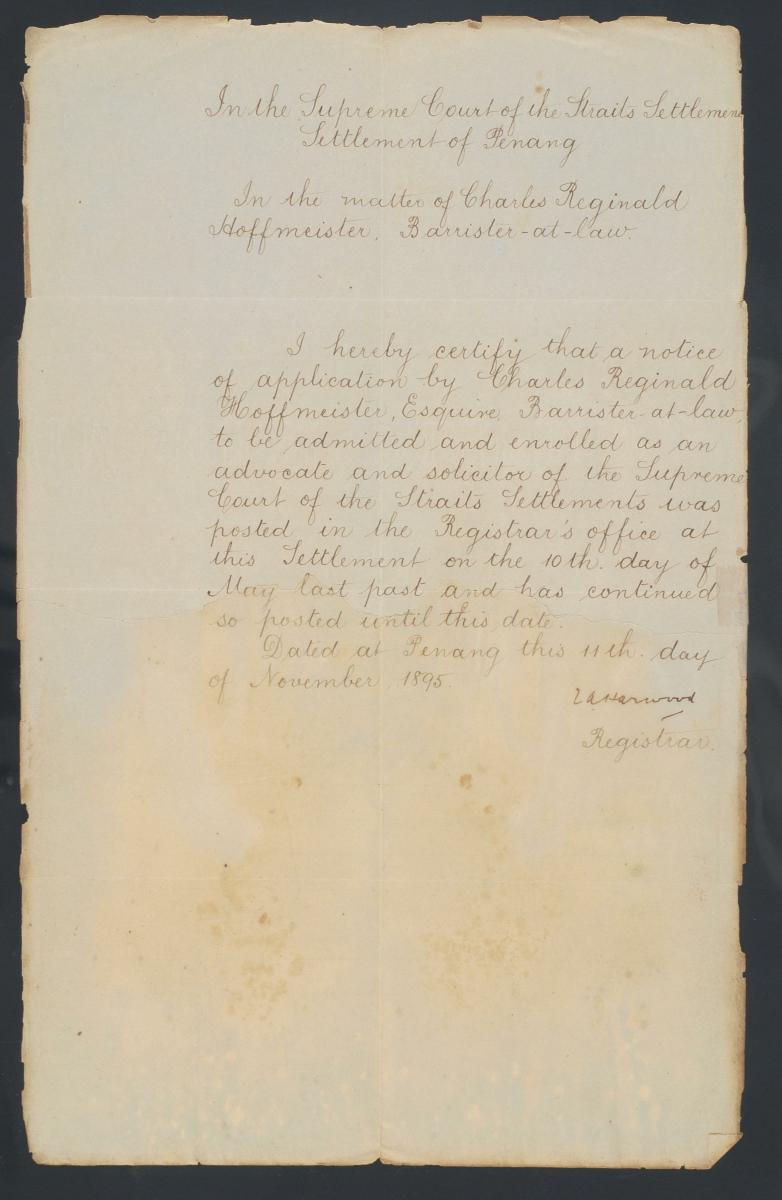 In the Supreme Court of the Straits Settlemen
Settlement of Penang
In the matter of Charles Reginald
Hoffmeister, Barrister-at-law.
I hereby certify that a notice
of application by Charles Reginald
Hoffmeister, Esquire, Barrister-at-law,
to be admitted and enrolled as an
advocate and solicitor of the Supreme
Court of the Straits Settlements was
posted in the Registrar's office at
this Settlement on the 10th. day of
May last past and has continued
so posted until this date.
Dated at Penang this 11th. day
of November, 1895.
Harwood
Registrar.